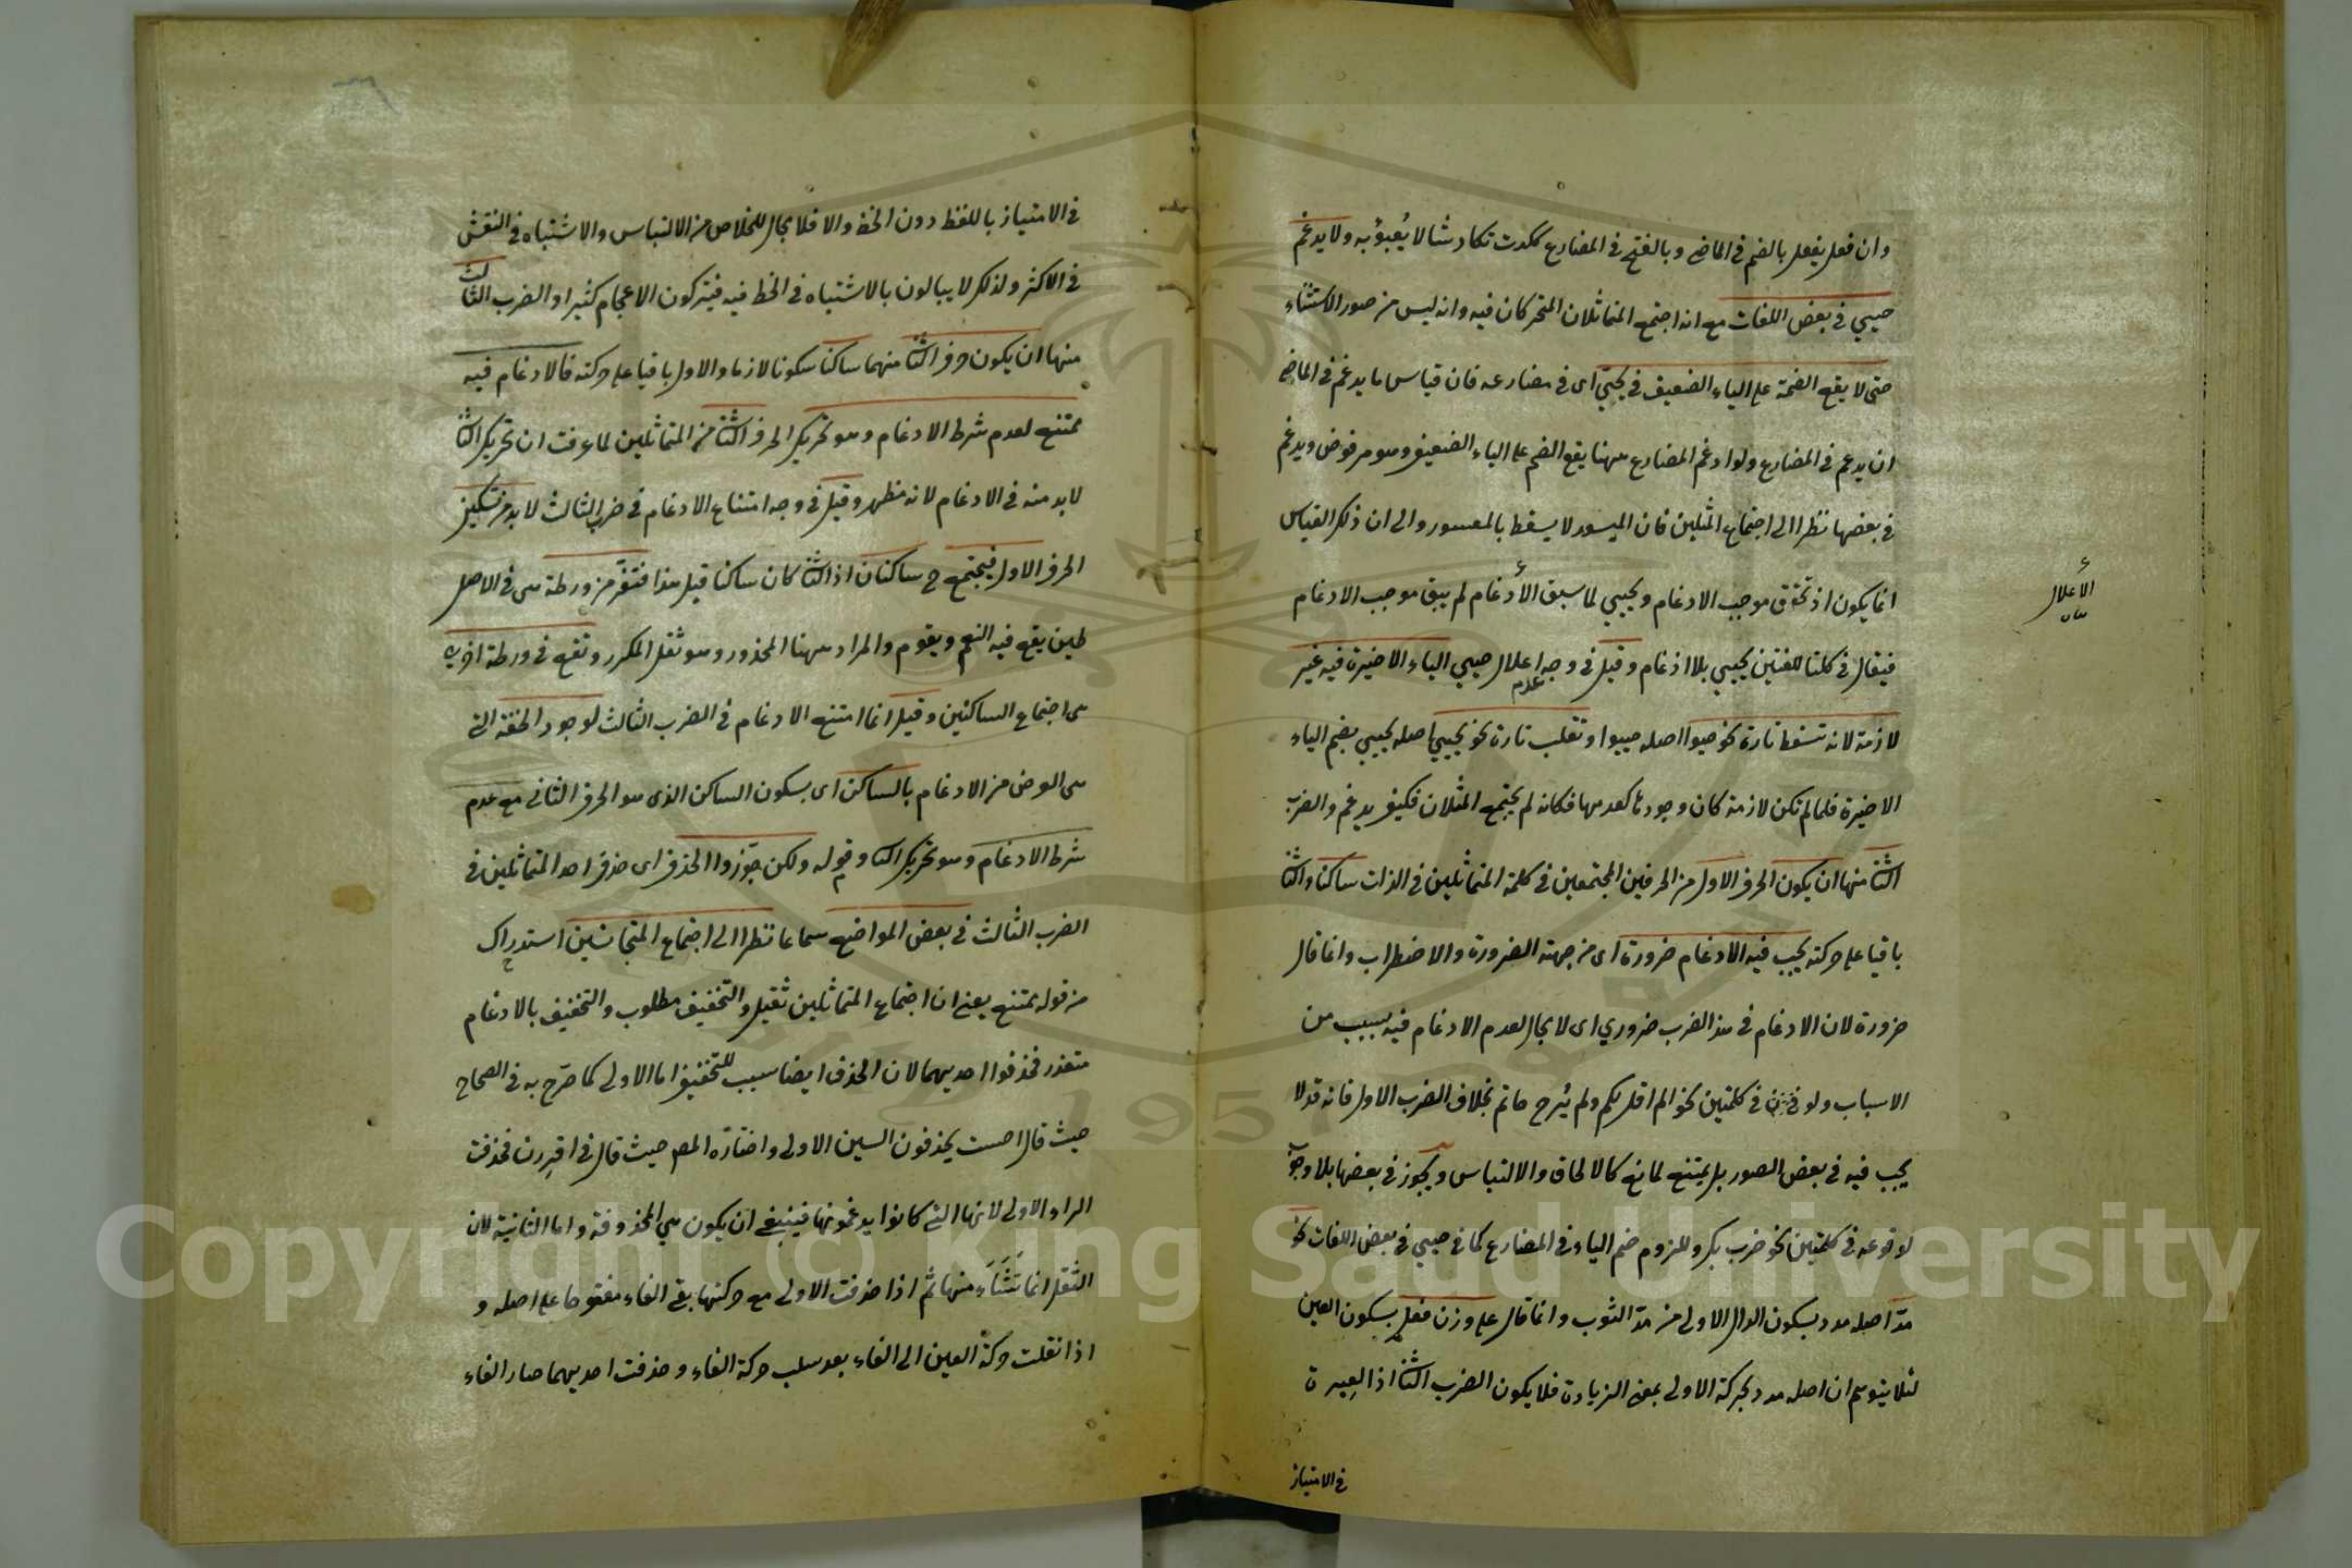 وان فعل يفعل بالضم في الماضي وبالفتح في المضارع ككدت تكاد شاذ لا يُعبؤ به ولا يدغم
حيي في بعض اللغات مع انه اجتمع المتماثلان المتحركان فيه وانه ليس من صور الاستثناء
حتى لا يقع الضمة على الياء الضعيف في يحيّ اى في مضارعه فان قياس ما يدغم في الماضي
ان يدغم في المضارع ولو ادغم المضارع ههنا يقع الضم على الياء الضعيف وهو مرفوض ويدغم
في بعضها نظرا الى اجتماع المثلين فان الميسور لا يسقط بالمعسور والى ان ذلك القياس
انما يكون اذ تحقق موجب الادغام ويحيي لما سبق الأدغام لم يبق موجب الادغام
الأعلال
بيان
فيقال في كلتا اللغتين يحيي بلا ادغام وقيل في وجه اعلال حيي الياء الاخيرة فيه غير
عدم
لازمة لانه تسقط تارة نحو حيوا اصله حييوا وتقلب تارة نحو يحيي اصله يحيي بضم الياء
الاخيرة فلما لم تكن لازمة كان وجودها كعدمها فكانه لم يجتمع المثلان فكيف يدغم والضرب
الثا منها ان يكون الحرف الاول من الحرفين المجتمعين في كلمة المتماثلين في الذات ساكنا والثا
باقيا على حركته يجب فيه الادغام ضرورة اى من جهته الضرورة والاضطراب وانما قال
ضرورة لان الادغام في هذا الضرب ضروري اى لا مجال لعدم الادغام فيه بسبب من
الاسباب ولو في كلمتين نحو الم اقل لكم ولم يُرح حاتم بخلاف الضرب الاول فانه قد لا
يجب فيه في بعض الصور بل يمتنع لمانع كالالحاق والالتباس ويجوز في بعضها بلا وجوب
لوقوعه في كلمتين نحو ضرب بكر وللزوم ضم الياء في المضارع كما في حيي في بعض اللغات نحو
مدّ اصله مدد بسكون الدال الاولى من مدّ الثوب وانما قال على وزن فعل بسكون العين
لئلا يتوهم ان اصله مدد بحركة الاولى بمعنى الزيادة فلا يكون الضرب الثا اذ العبرة
في الامتياز
في الامتياز باللفظ دون الخط والا فلا مجال للخلاص من الالتباس والاشتباه في النقش
في الاكثر ولذلك لا يبالون بالاشتباه في الخط فيه فيتركون الاعجام كثيرا و الضرب الثالث
منها ان يكون حرف الثا منهما ساكنا سكونا لازما والاول باقيا على حركته فالادغام فيه
يمتنع لعدم شرط الادغام وهو تحريك الحرف الثا من المتماثلين لما عرفت ان تحريك الثا
لابد منه في الادغام لانه مظهر وقيل في وجه امتناع الادغام في ضرب الثالث لابد من تسكين
الحرف الاول فيجتمع ح ساكنان اذ الثا كان ساكنا قبل هذا فتفرّ من ورطة هى في الاصل
طين يقع فيه الغنم ويقوم والمراد ههنا المحذور وهو ثقل المكرر وتقع في ورطة اخرى
هى اجتماع الساكنين وقيل انما امتنع الادغام في الضرب الثالث لوجود الخفة التى
هى الغرض من الادغام بالساكن اى بسكون الساكن الذى هو الحرف الثانى مع عدم
شرط الادغام وهو تحريك الثا وقوله ولكن جوّزوا الحذف اى حذف احد المتماثلين في
الضرب الثالث في بعض المواضع سماعا نظرا الى اجتماع المتجانسين استدراك
من قوله يمتنع يعنى ان اجتماع المتماثلين ثقيل والتخفيف مطلوب والتخفيف بالادغام
متعذر فحذفوا احديهما لان الحذف ايضا سبب للتخفيف اما الاولى كما صرّح به في الصحاح
حيث قال احست يحذفون السين الاولى واختاره المص حيث قال في اقررن فحذفت
الراء الاولى لانها التى كانوا يدغمونها فينبغى ان يكون هي المحذوفة واما الثانية لان
الثقل انما تَنَشَّأَ منها ثم اذا حذفت الاولى مع حركتها بقى الفاء مفتوحا على اصله و
اذا نقلت حركة العين الى الفاء بعد سلب حركة الفاء وحذفت احديهما صار الفاء